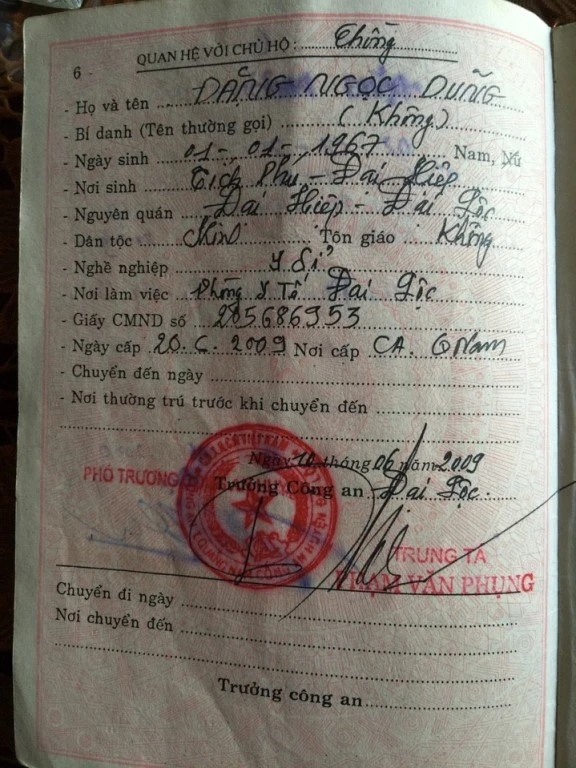 6 - QUAN HỆ VỚI CHỦ HỘ: Chồng
- Họ và tên ĐẶNG NGỌC DŨNG
- Bí danh (Tên thường gọi) (Không)
- Ngày sinh 01-01-1967 Nam, Nữ
- Nơi sinh Tích Phú - Đại Hiệp
- Nguyên quán Đại Hiệp - Đại Lộc
- Dân tộc Kinh Tôn giáo Không
- Nghề nghiệp Y Sĩ
- Nơi làm việc Phòng Y Tế Đại Lộc
- Giấy CMND số 205686353
- Ngày cấp 20.6.2009 Nơi cấp CA. QNam
- Chuyển đến ngày
- Nơi thường trú trước khi chuyển đến
Ngày 10 tháng 06 năm 2009
PHÓ TRƯỞNG
Trưởng Công an Đại Lộc
TRUNG TÁ
PHẠM VĂN PHỤNG
Chuyển đi ngày
Nơi chuyển đến
Trưởng công an